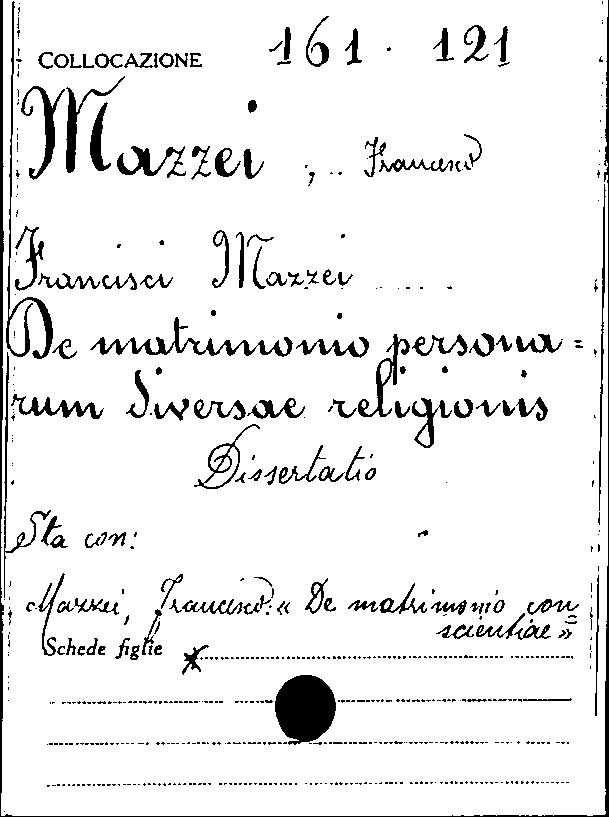 COLLOCAZIONE 161 · 121
Mazzei, .. Francesco
Francisci Mazzei .....
De matrimonio persona=
rum diversae religionis
Dissertatio
Sta con:
Mazzei, Francesco: « De matrimonio con
scientiae »
Schede figlie x